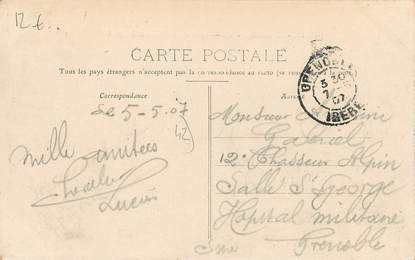 12 €.
CARTE POSTALE
Tous les pays étrangers n'acceptent pas la correspondance au recto (se rens
Correspondance
GRENOBLE
3 30
07
ISERE
Le 5-5-07
42
Monsieur
Gabriel
12e Chasseur Alpin
Salle St George
Hopital militaire
Grenoble
mille amitiés
Lucien